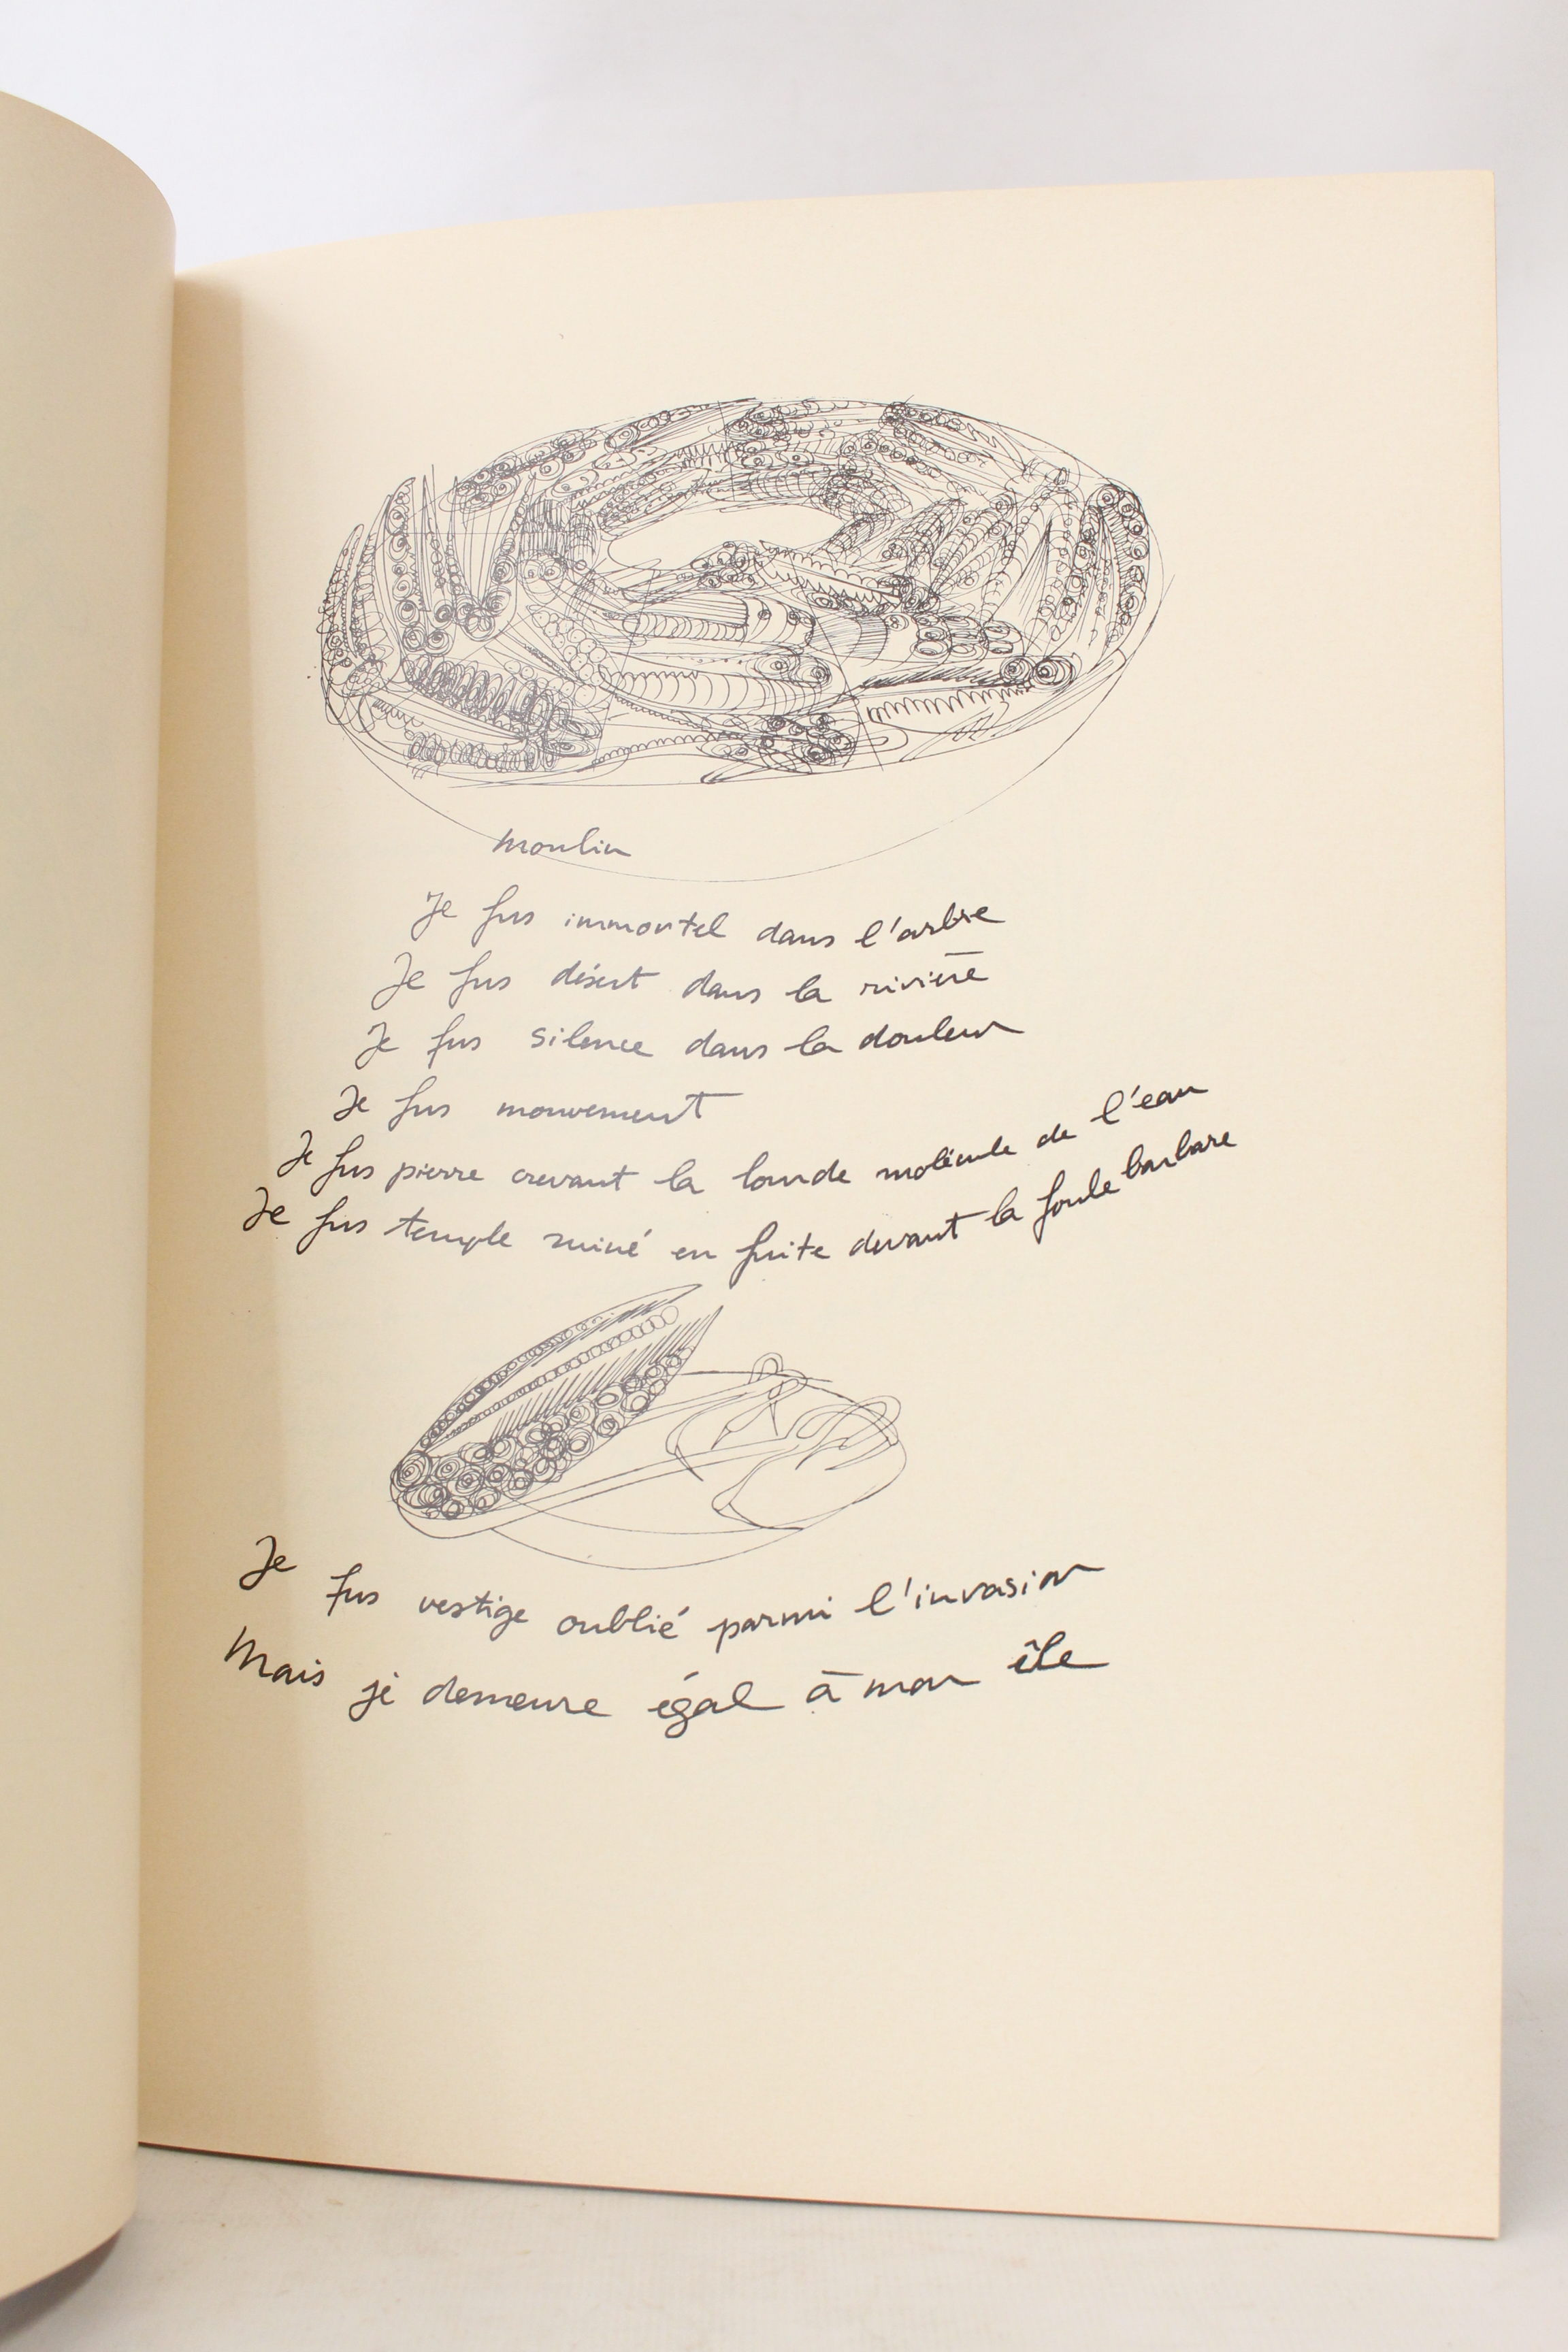 Moulin
Je fus immortel dans l'arbre
Je fus désert dans la rivière
Je fus silence dans la douleur
Je fus mouvement
Je fus pierre crevant la lourde molécule de l'eau
Je fus temple ruiné en fuite devant la foule barbare
Je fus vestige oublié parmi l'invasion
Mais je demeure égal à mon île